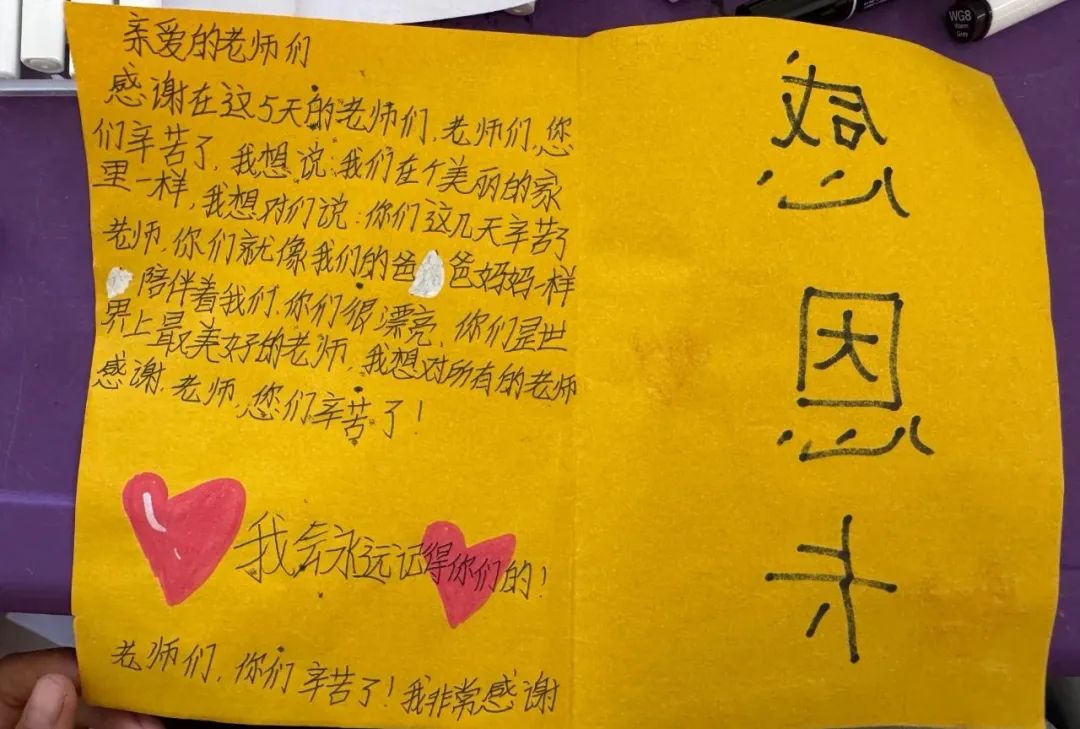 亲爱的老师们
感谢在这5天的老师们,老师们,您
们辛苦了,我想说:我们在个美丽的家
里一样,我想对们说:你们这几天辛苦了
老师,你们就像我们的爸爸妈妈一样
陪伴着我们.你们很漂亮,你们是世
界上最美好的老师,我想对所有的老师
感谢.老师,您们辛苦了!
我会永远记得你们的!
老师们,你们辛苦了!我非常感谢
感
恩
卡
WG8
Warm
Grey